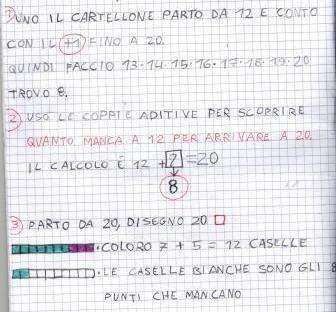 1) UNO IL CARTELLONE PARTO DA 12 E CONTO
CON IL +1 FINO A 20.
QUINDI FACCIO 13·14·15·16·17·18·19·20
TROVO 8.
2) USO LE COPPIE ADITIVE PER SCOPRIRE
QUANTO MANCA A 12 PER ARRIVARE A 20.
IL CALCOLO È 12 + ? = 20
8
3) PARTO DA 20, DISEGNO 20 □
·COLORO 7 + 5 = 12 CASELLE
·LE CASELLE BIANCHE SONO GLI 8
PUNTI CHE MANCANO